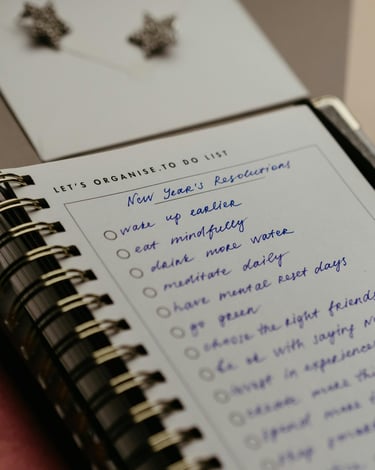 LET'S ORGANISE.TO DO LIST
New Year's Resolutions
wake up earlier
eat mindfully
drink more water
meditate daily
have mental reset days
go green
choose the right friends
be ok with saying No
invest in experiences
more
spend more